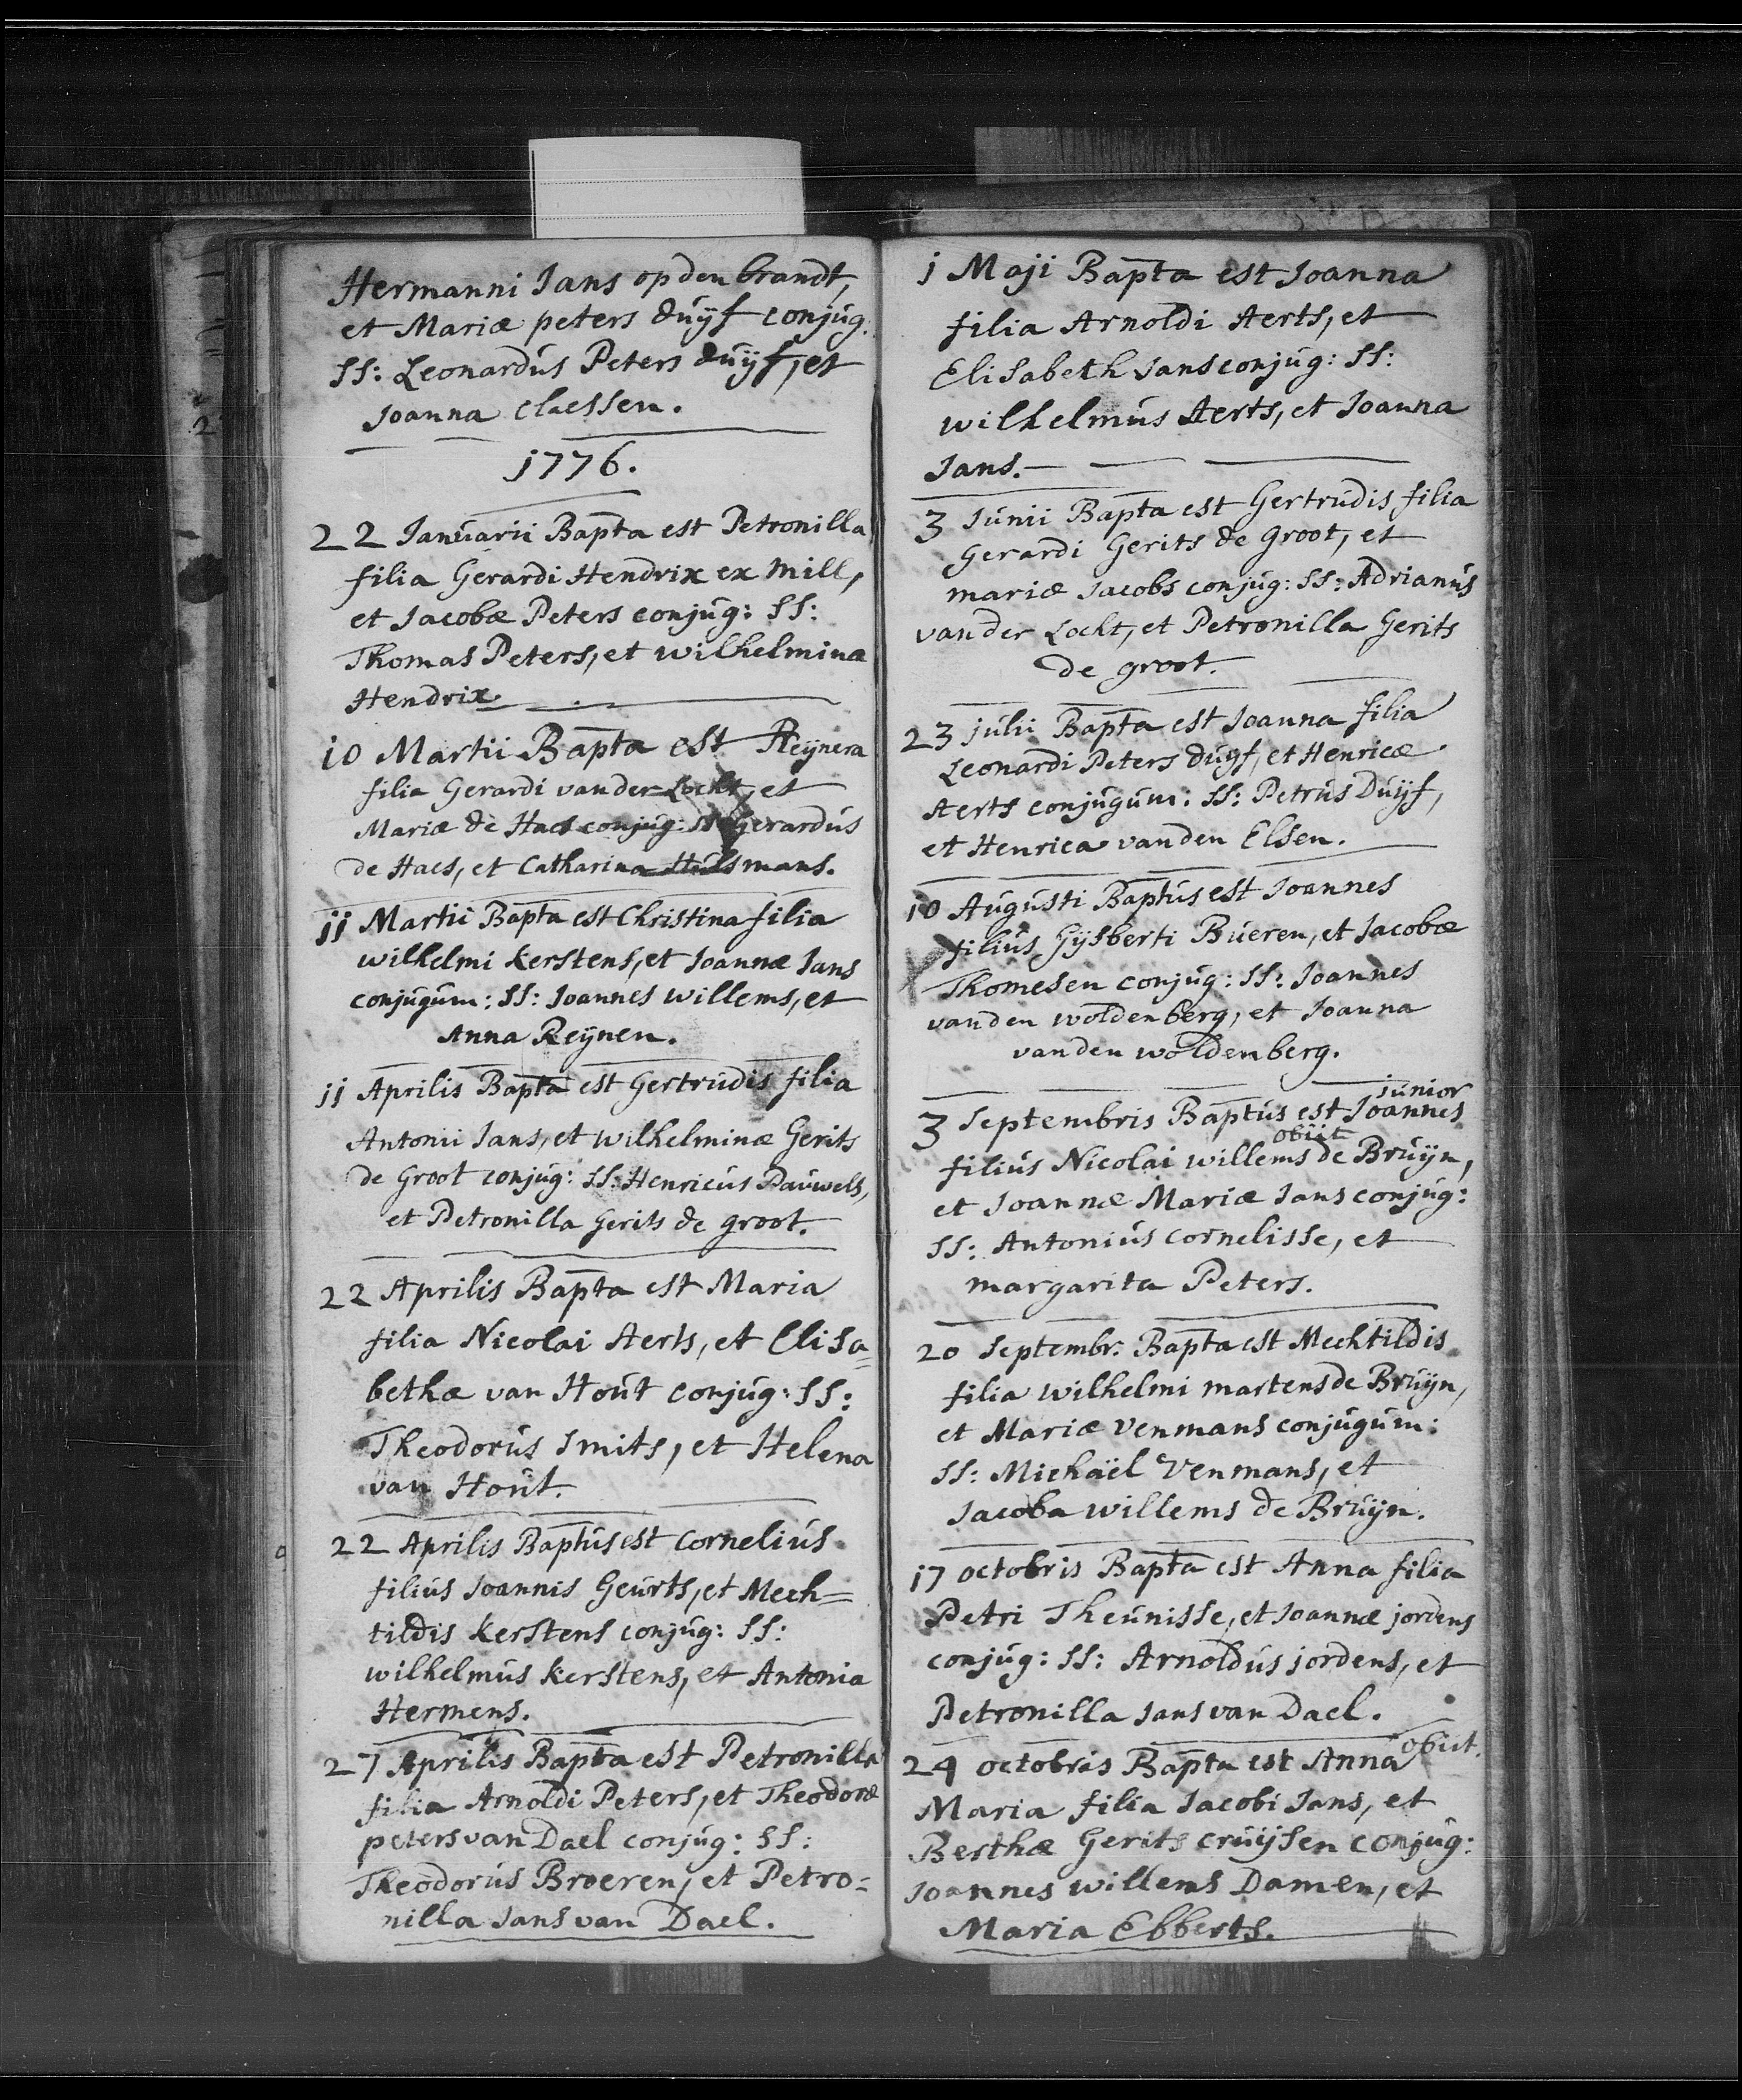 Hermanni Jans op den brandt,
et Mariæ peters duÿf conjug.
SS: Leonardus Peters duÿf, et
Joanna Claessen.
1776.
22 Januarii Bapta est Petronilla
filia Gerardi Hendrix ex Mill,
et Jacobæ Peters conjug: SS:
Thomas Peters, et wilhelmina
Hendrix.
10 Martii Bapta est Reÿnera
filia Gerardi vander Locht, et
Mariæ de Haes conjug: SS Gerardus
de Haes, et Catharina Hulsmans.
11 Martii Bapta est Christina filia
wilhelmi kerstens, et Joannæ Jans
conjugum: SS: Joannes willems, et
Anna Reÿnen.
11 Aprilis Bapta est Gertrudis filia
Antonii Jans, et wilhelminæ Gerits
de Groot conjug: SS: Henricus Pauwels,
et Petronilla Gerits de groot.
22 Aprilis Bapta est Maria
filia Nicolai Aerts, et Elisa=
bethæ van Hout conjug: SS:
Theodorus Smits, et Helena
van Hout.
22 Aprilis Baptus est Cornelius
filius Joannis Geurts, et Mech=
tildis kerstens conjug: SS:
wilhelmus kerstens, et Antonia
Hermens.
27 Aprilis Bapta est Petronilla
filia Arnoldi Peters, et Theodoræ
peters van Dael conjug: SS:
Theodorus Broeren, et Petro=
nilla Jans van Dael.
1 Maji Bapta est Joanna
filia Arnoldi Aerts, et
Elisabeth Jans conjug: SS:
wilhelmus Aerts, et Joanna
Jans.
3 Junii Bapta est Gertrudis filia
Gerardi Gerits de Groot, et
mariæ Jacobs conjug: SS: Adrianus
vander Locht, et Petronilla Gerits
de groot.
23 julii Bapta est Joanna filia
Leonardi Peters duÿf, et Henricæ
Aerts conjugum: SS: Petrus Duÿf,
et Henrica vanden Elsen.
10 Augusti Baptus est Joannes
filius Gÿsberti Bueren, et Jacobæ
X Thomesen conjug: SS: Joannes
vanden woldenberg, et Joanna
vanden woldenberg.
junior
3 Septembris Baptus est Joannes
obiit
filius Nicolai willems de Bruÿn,
et Joannæ Mariæ Jans conjug:
SS: Antonius Cornelisse, et
margarita Peters.
20 Septembr: Bapta est Mechtildis
filia wilhelmi martens de Bruÿn,
et Mariæ Venmans conjugum:
SS: Michaël Venmans, et
Jacoba willems de Bruÿn.
17 octobris Bapta est Anna filia
Petri Theunisse, et Joannæ jordens
conjug: SS: Arnoldus jordens, et
Petronilla Jans van Dael.
obiit.
24 octobris Bapta est Anna
Maria filia Jacobi Jans, et
Berthæ Gerits cruÿsen conjug:
Joannes willems Damen, et
Maria Ebberts.